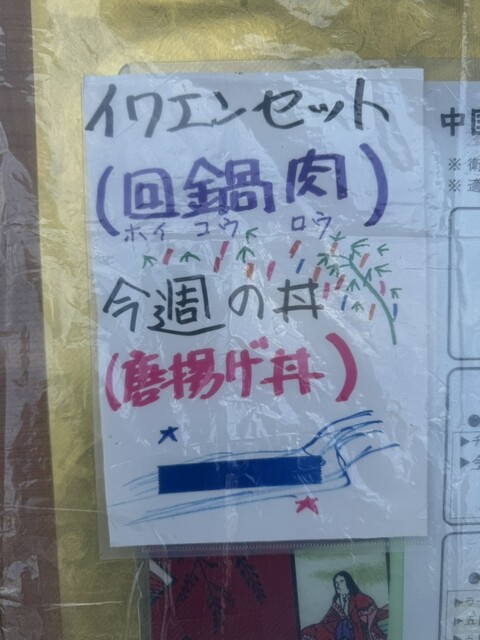 イワエンセット
(回鍋肉)
ホイ コウ ロウ
今週の丼
(唐揚げ丼)
中国
※ 衛
※ 適